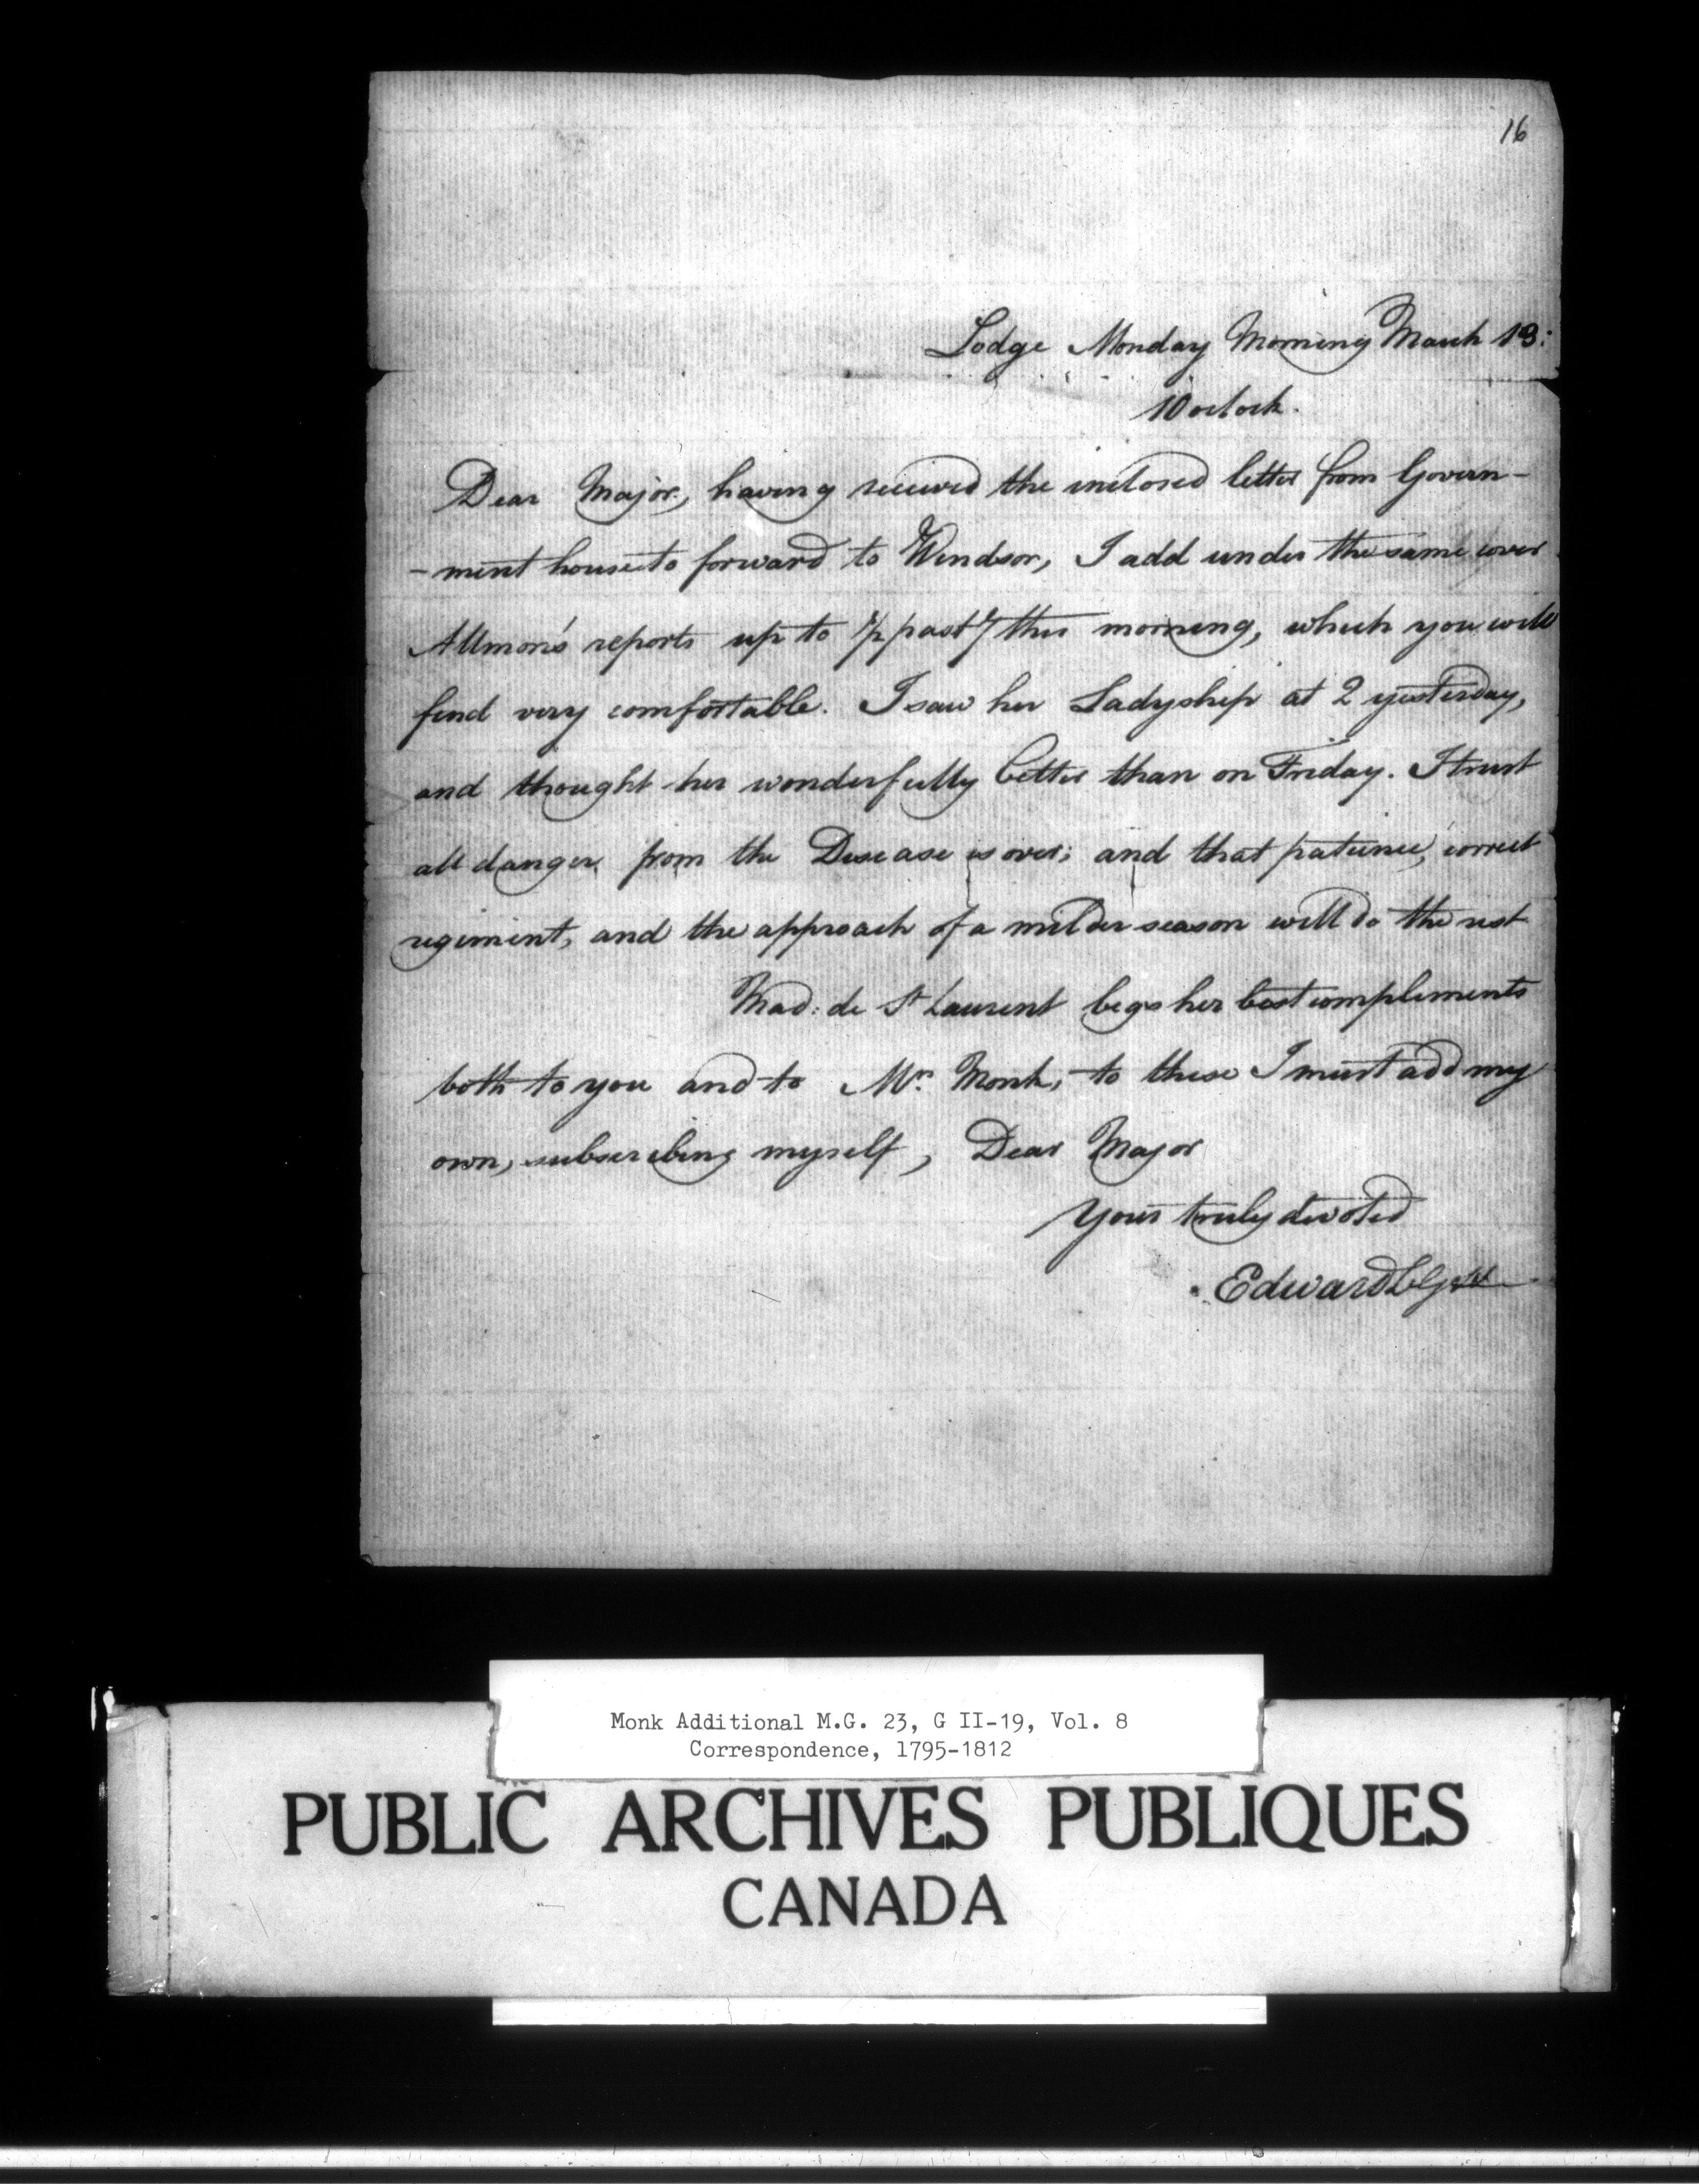 16
Lodge Monday Morning March 13:
10 oclock.
Dear Major, having received the inclosed letter from Govern-
-ment house to forward to Windsor, I add under the same cover
Allmon's reports up to 1/2 past 7 this morning, which you will
find very comfortable. I saw her Ladyship at 2 yesterday,
and thought her wonderfully better than on Friday. I trust
all danger from the Disease is over; and that patience, correct
regiment, and the approach of a milder season will do the rest
Mad: de St Laurent begs her best compliments
both to you and to Mrs. Monk, to these I must add my
own, subscribing myself, Dear Major
Yours truly devoted
Edward
Monk Additional M.G. 23, G II-19, Vol. 8
Correspondence, 1795-1812
PUBLIC ARCHIVES PUBLIQUES
CANADA